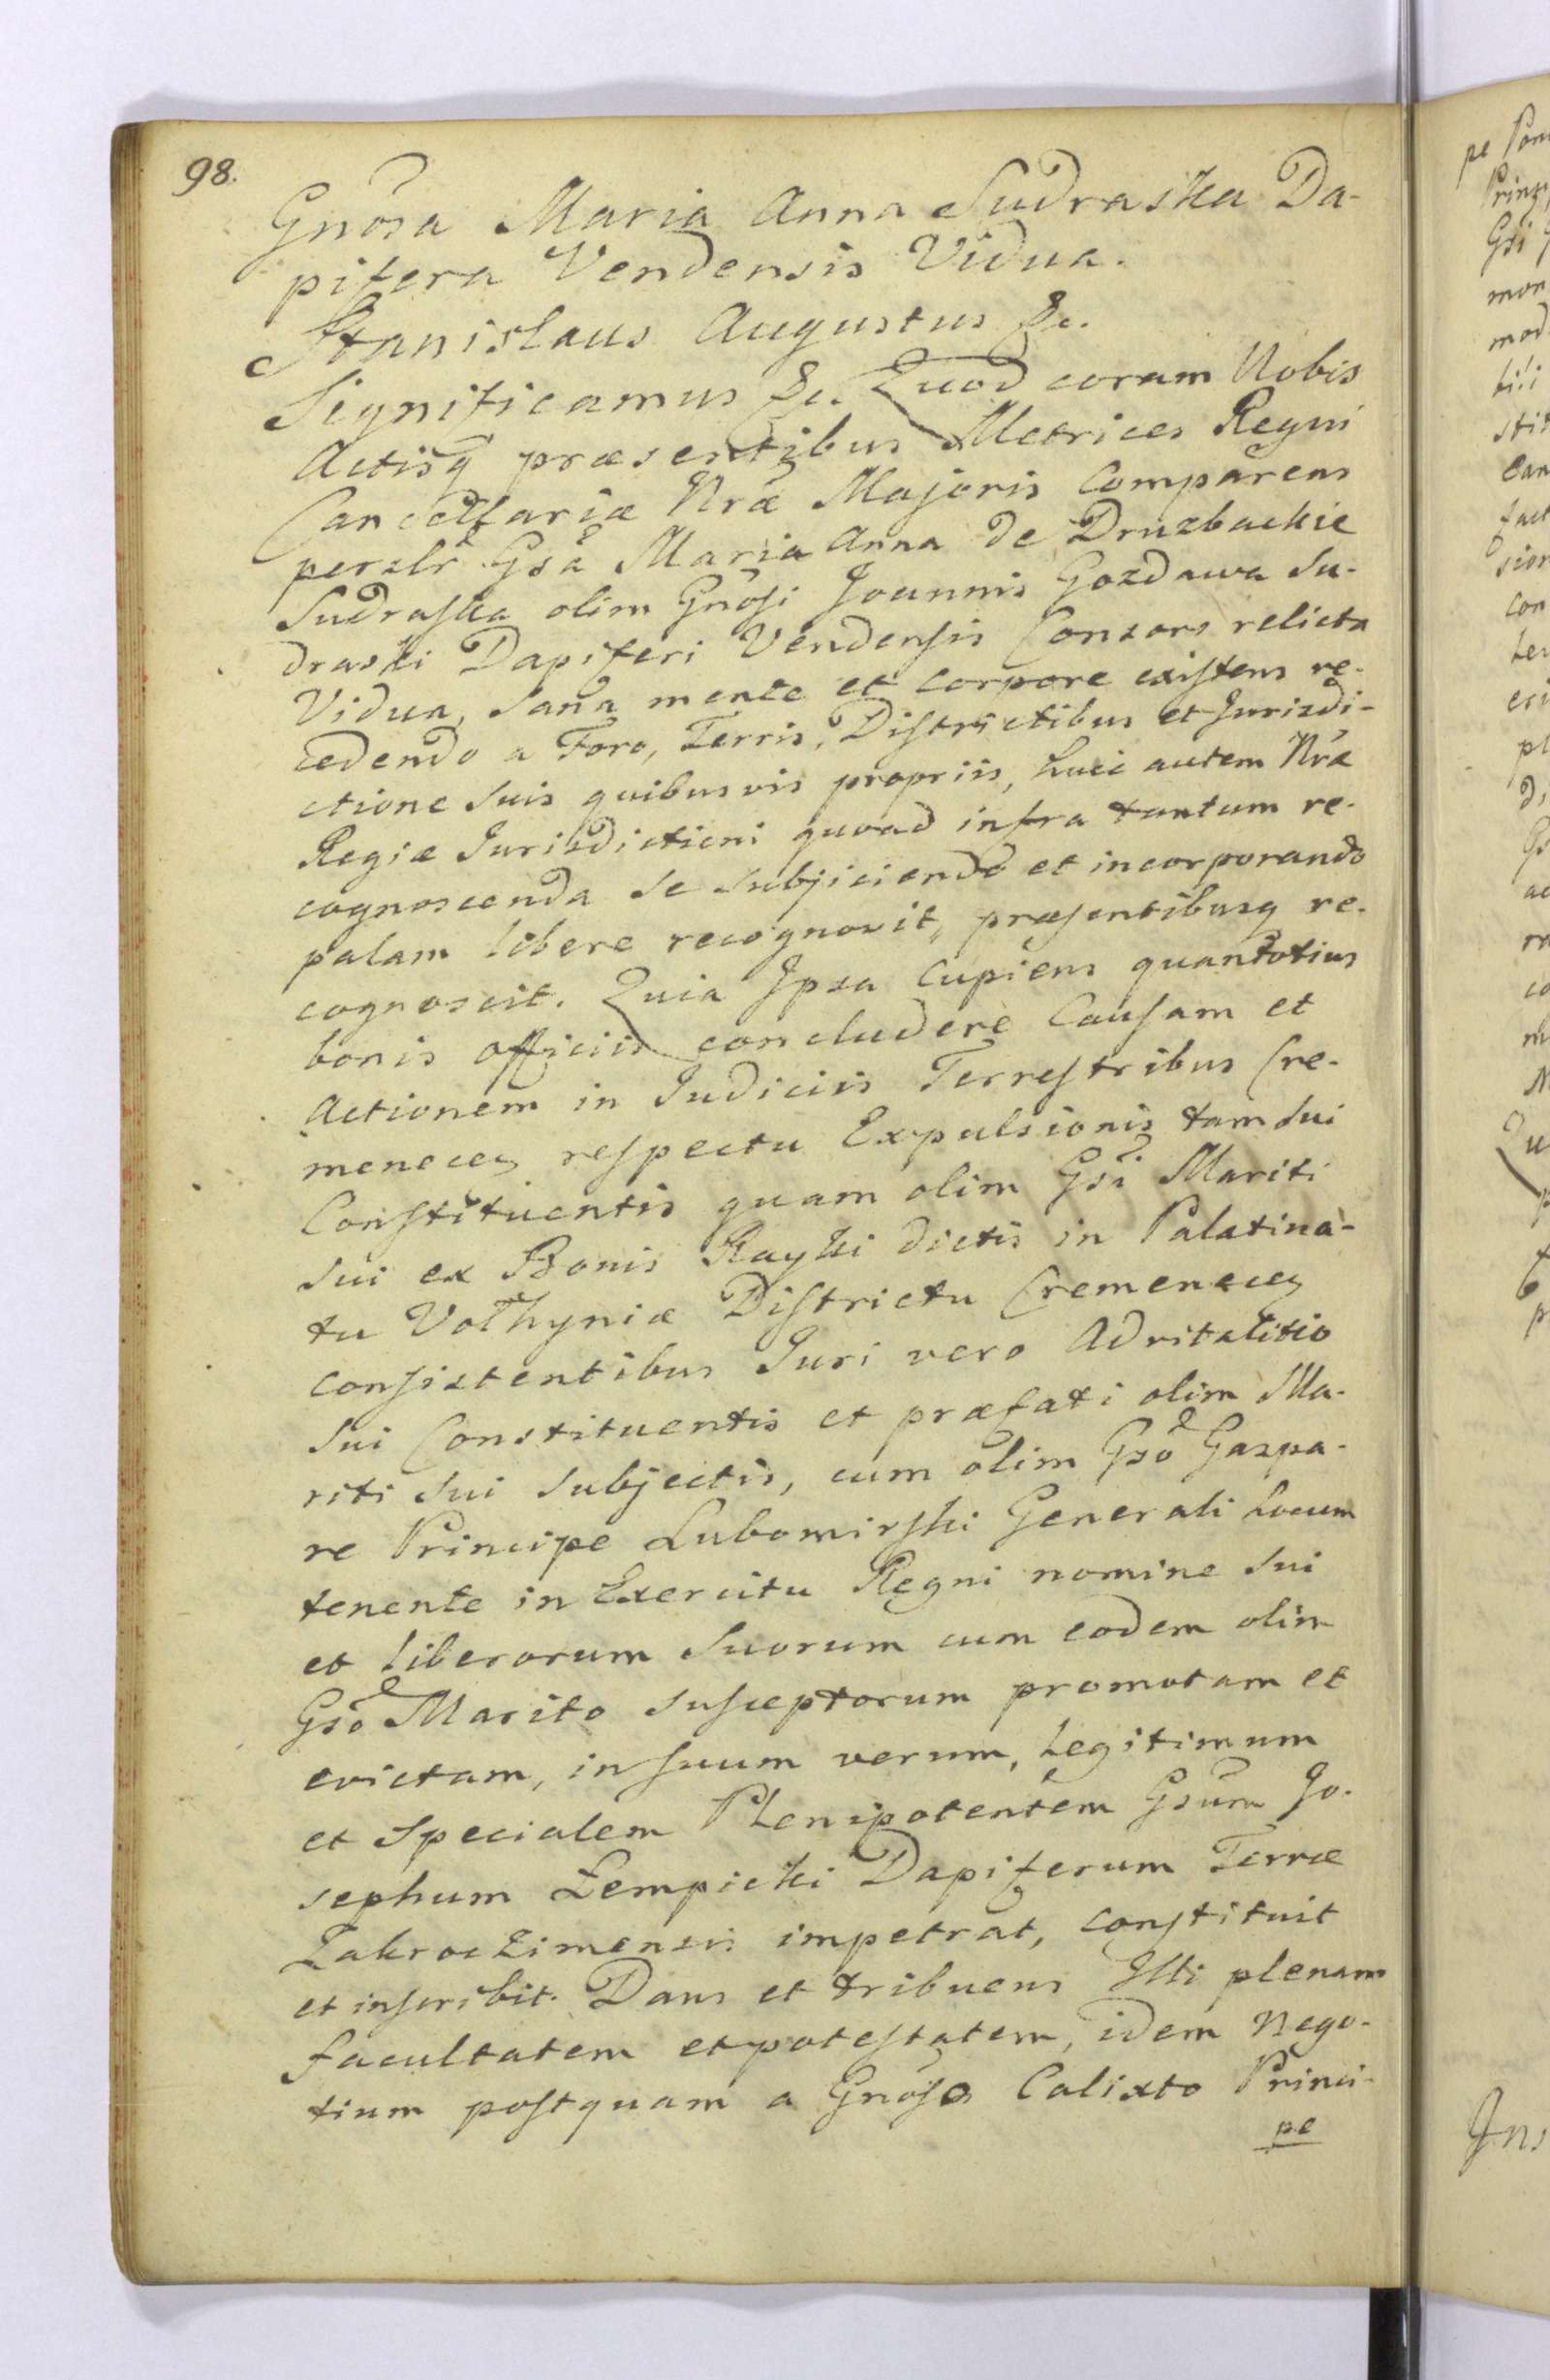 98.
Gnosa Maria Anna Sudraska Da-
pifera Vendensis Vidua.
Stanislaus Augustus &c.
Significamus &c. Quod coram Nobis
Actisq praesentibus Metrices Regni
Cancellariae Nrae Majoris Comparens
persalr Gsa Maria Anna de Druzbackie
Sudraska olim Gnosi Joannis Gozdawa Su-
draski Dapiferi Vendensis Consors relicta
Vidua, sana mente et corpore existens re-
cedendo a Foro, Terris, Districtibus et Jurisdi-
ctione suis quibusvis propriis, huic autem Nrae
Regiae Jurisdictioni quoad infra tantum re-
cognoscenda se subjiciendo et incorporando
palam libere recognovit, praesentibusq re-
cognoscit. Quia Ipsa Cupiens quantotius
bonis officiis concludere Causam et
Actionem in Judiciis Terrestribus Cre-
menecen respectu Expulsionis tam sui
Constituentis quam olim Gsi Mariti
sui ex Bonis Rayki dictis in Palatina-
tu Volhyniae Districtu Cremenecen
consistentibus Juri vero Advitalitio
sui Constituentis et praefati olim Ma-
riti sui subjectis, cum olim Gso Gaspa-
re Principe Lubomirski Generali Locum
tenente in Exercitu Regni nomine sui
et liberorum suorum cum eodem olim
Gso Marito susceptorum promotam et
evictam, in suum verum, legitimum
et specialem Plenipotentem Gsum Jo-
sephum Lempicki Dapiferum Terrae
Zakroczimensis impetrat, constituit
et inscribit. Dans et tribuens Illi plenam
facultatem et potestatem, idem Nego-
tium postquam a Gnoso Calixto Princi-
pe